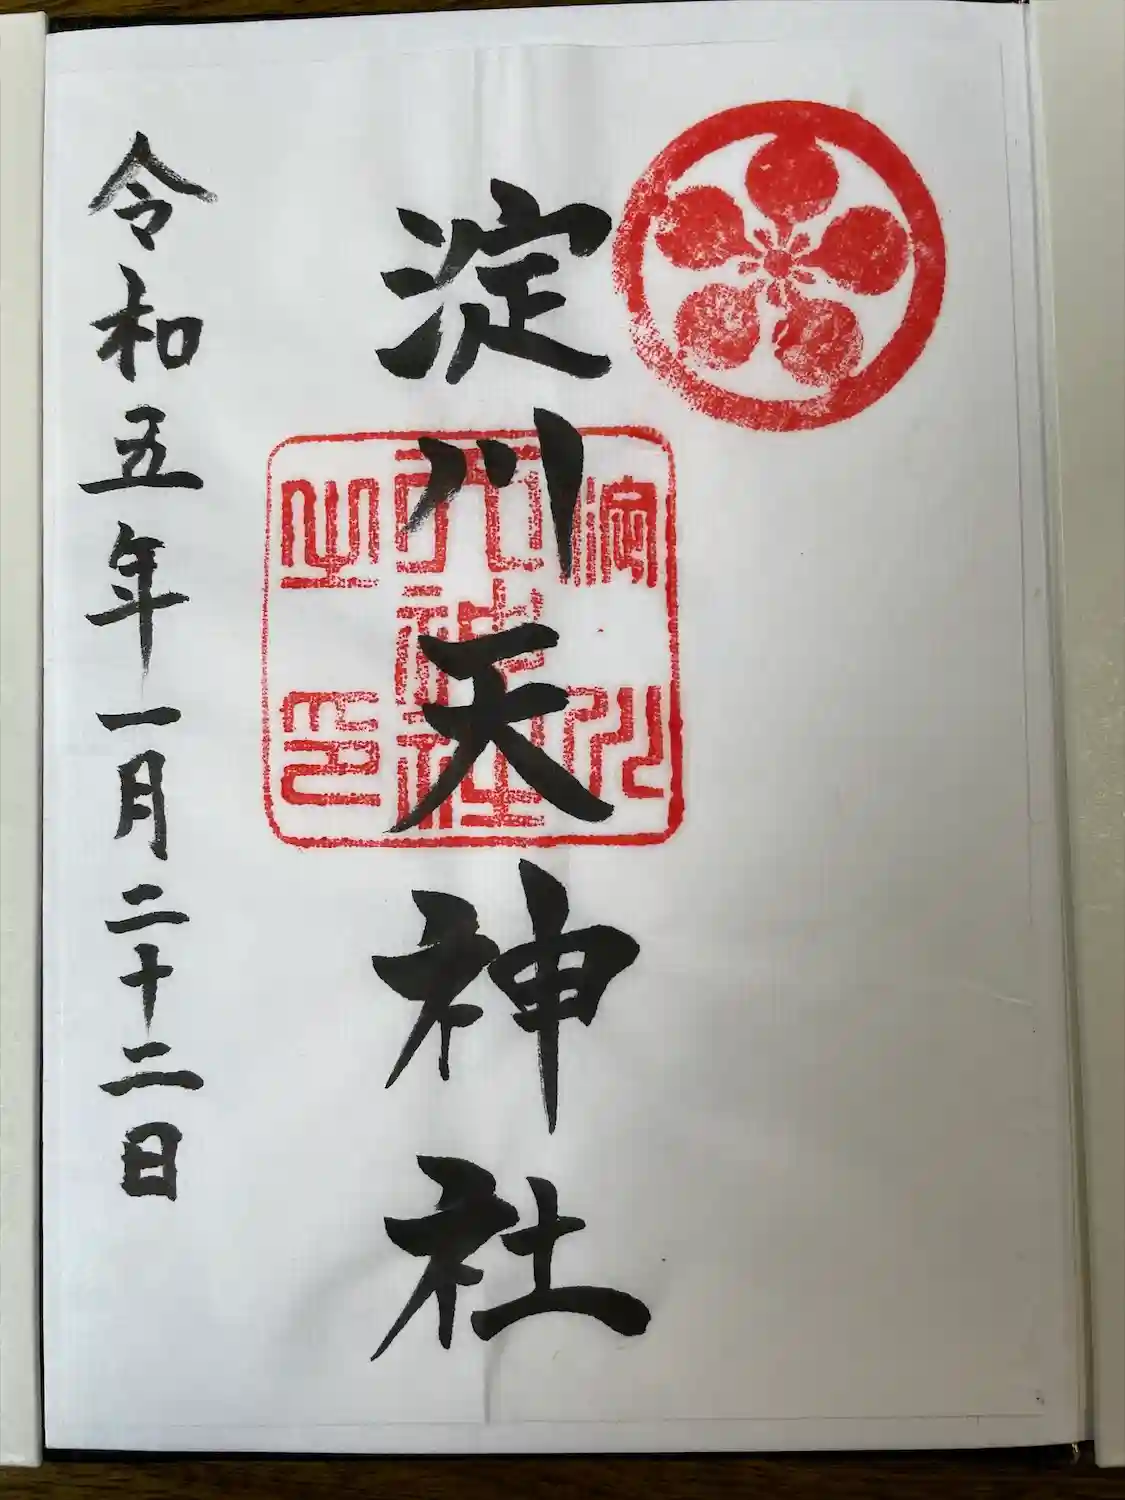 淀川天神社
淀川
天神社
之印
令和五年一月二十二日